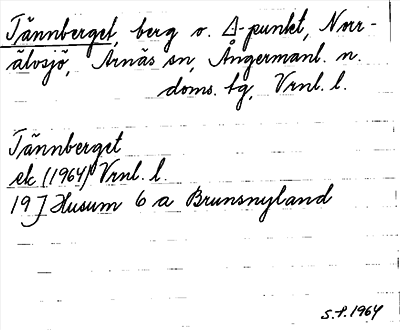 Tännberget, berg o. △-punkt, Norr-
älvsjö, Arnäs sn, Ångermanl. n.
doms. tg, Vrnl. l.
Tännberget
ek (1964) Vrnl. l.
19 J Husum 6 a Brunsnyland
S.P. 1964